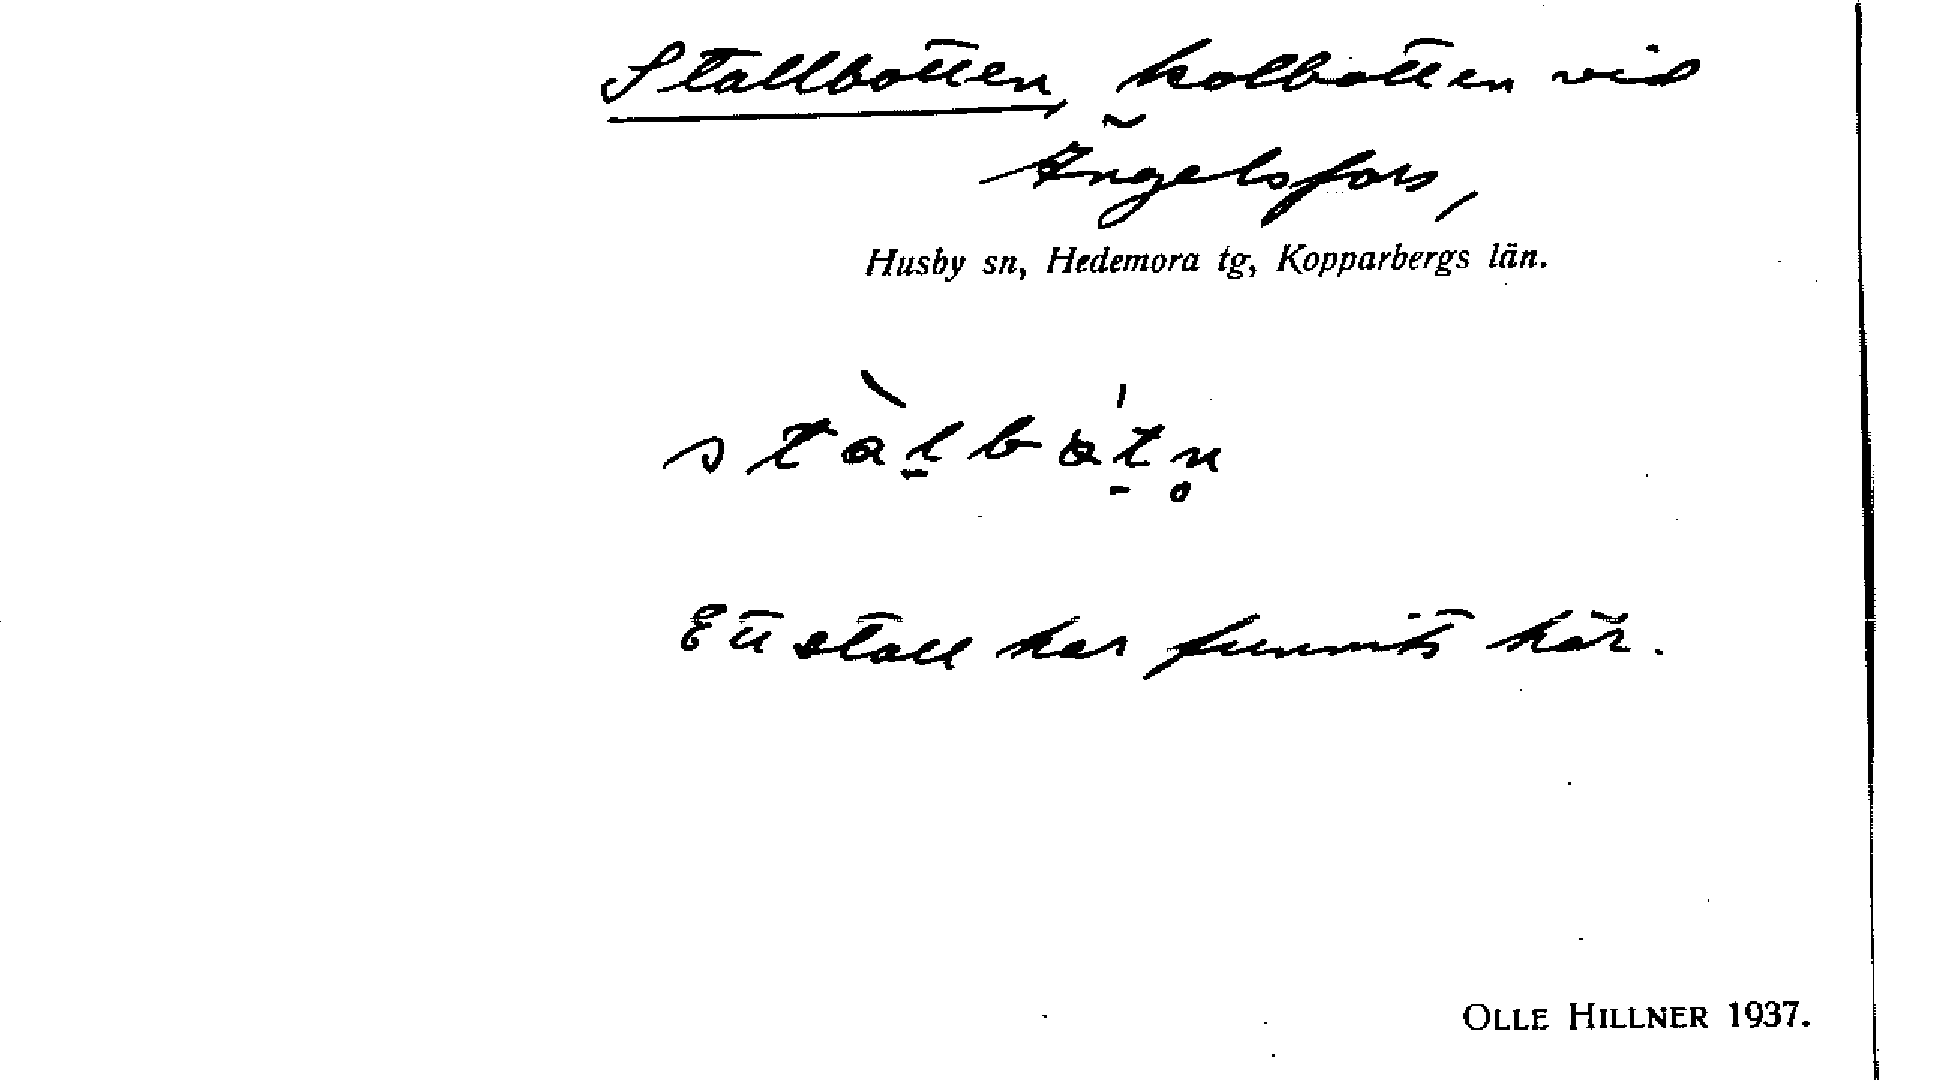 Stallbotten, kolbotten vid
Ängelsfors,
Husby sn, Hedemora tg, Kopparbergs län.
stàl̠bát̠n̥
Ett stall har funnits här.
OLLE HILLNER 1937.